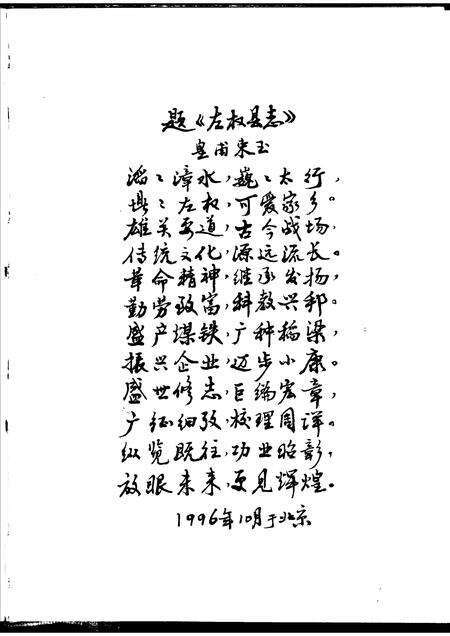 题《左权县志》
皇甫束玉
滔﹕漳水，巍﹕太行，
堪﹕左权，可爱家乡。
雄关要道，古今战场，
传统文化，源远流长。
革命精神，继承发扬，
勤劳致富，科教兴邦。
盛产煤铁，广种梁，
振兴企业，迈步小康。
盛世修志，巨编宏章，
广征细考，校理周详。
纵览既往，功业昭彰，
放眼未来，更见辉煌。
1996年10月于北京